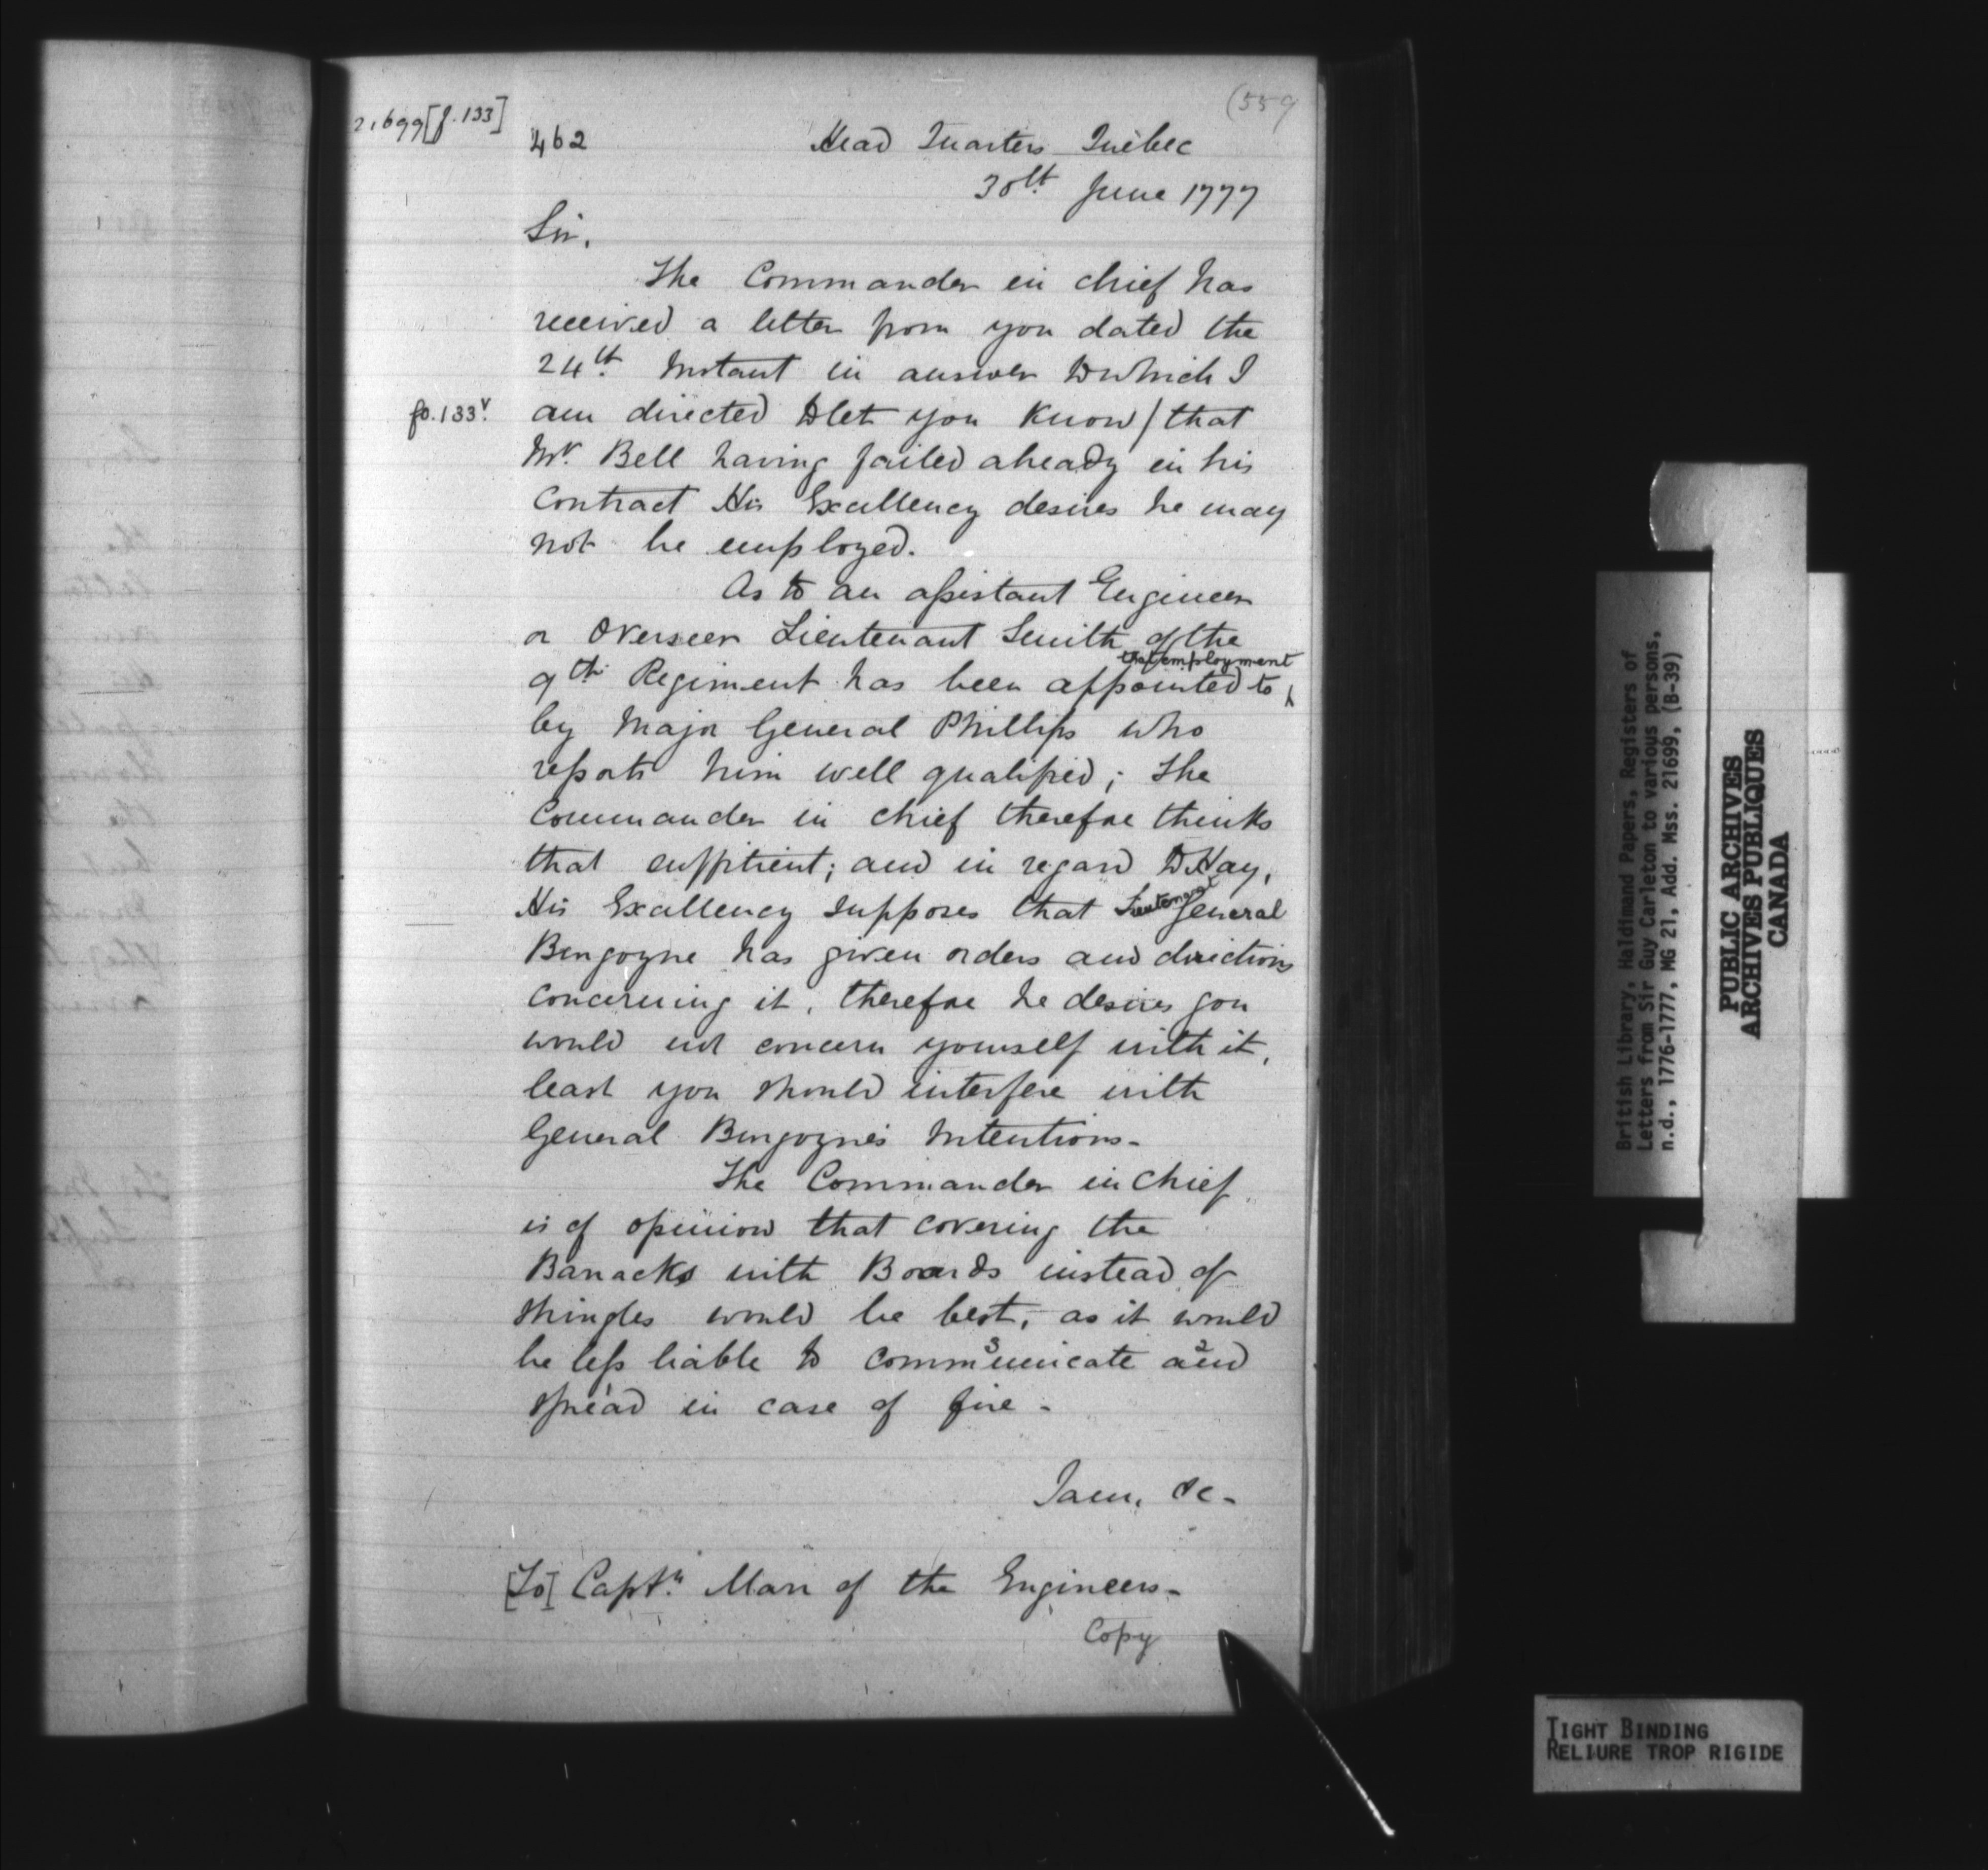 (559
21699[f.133]
462 Head Quarters Quebec
30th June 1777
Sir,
The Commander in chief has
received a letter from you dated the
24th Instant in answer to which I
fo.133v. am directed to let you know / that
Mr. Bell having failed already in his
Contract His Excellency desires he may
not be employed.
As to an assistant Engineer
or Overseer Lieutenant Smith of the
that employment
9th Regiment has been appointed to ^
by Major General Phillips who
reports him well qualified; the
Commander in chief therefore thinks
that suffitient; and in regard to Hay,
His Excellency supposes that Lieutenant General
Burgoyne has given orders and directions
concerning it, therefore he desires you
would not concern yourself with it,
least you should interfere with
General Burgoyne's Intentions-
The Commander in Chief
is of opinion that covering the
Barracks with Boards instead of
Shingles would be best, as it would
be less liable to communicate and
spread in case of fire-
I am, &c-
[To] Captn. Marr of the Engineers-
Copy
British Library, Haldimand Papers, Registers of
Letters from Sir Guy Carleton to various persons,
n.d., 1776-1777, MG 21, Add. Mss. 21699, (B-39)
PUBLIC ARCHIVES
ARCHIVES PUBLIQUES
CANADA
TIGHT BINDING
RELIURE TROP RIGIDE